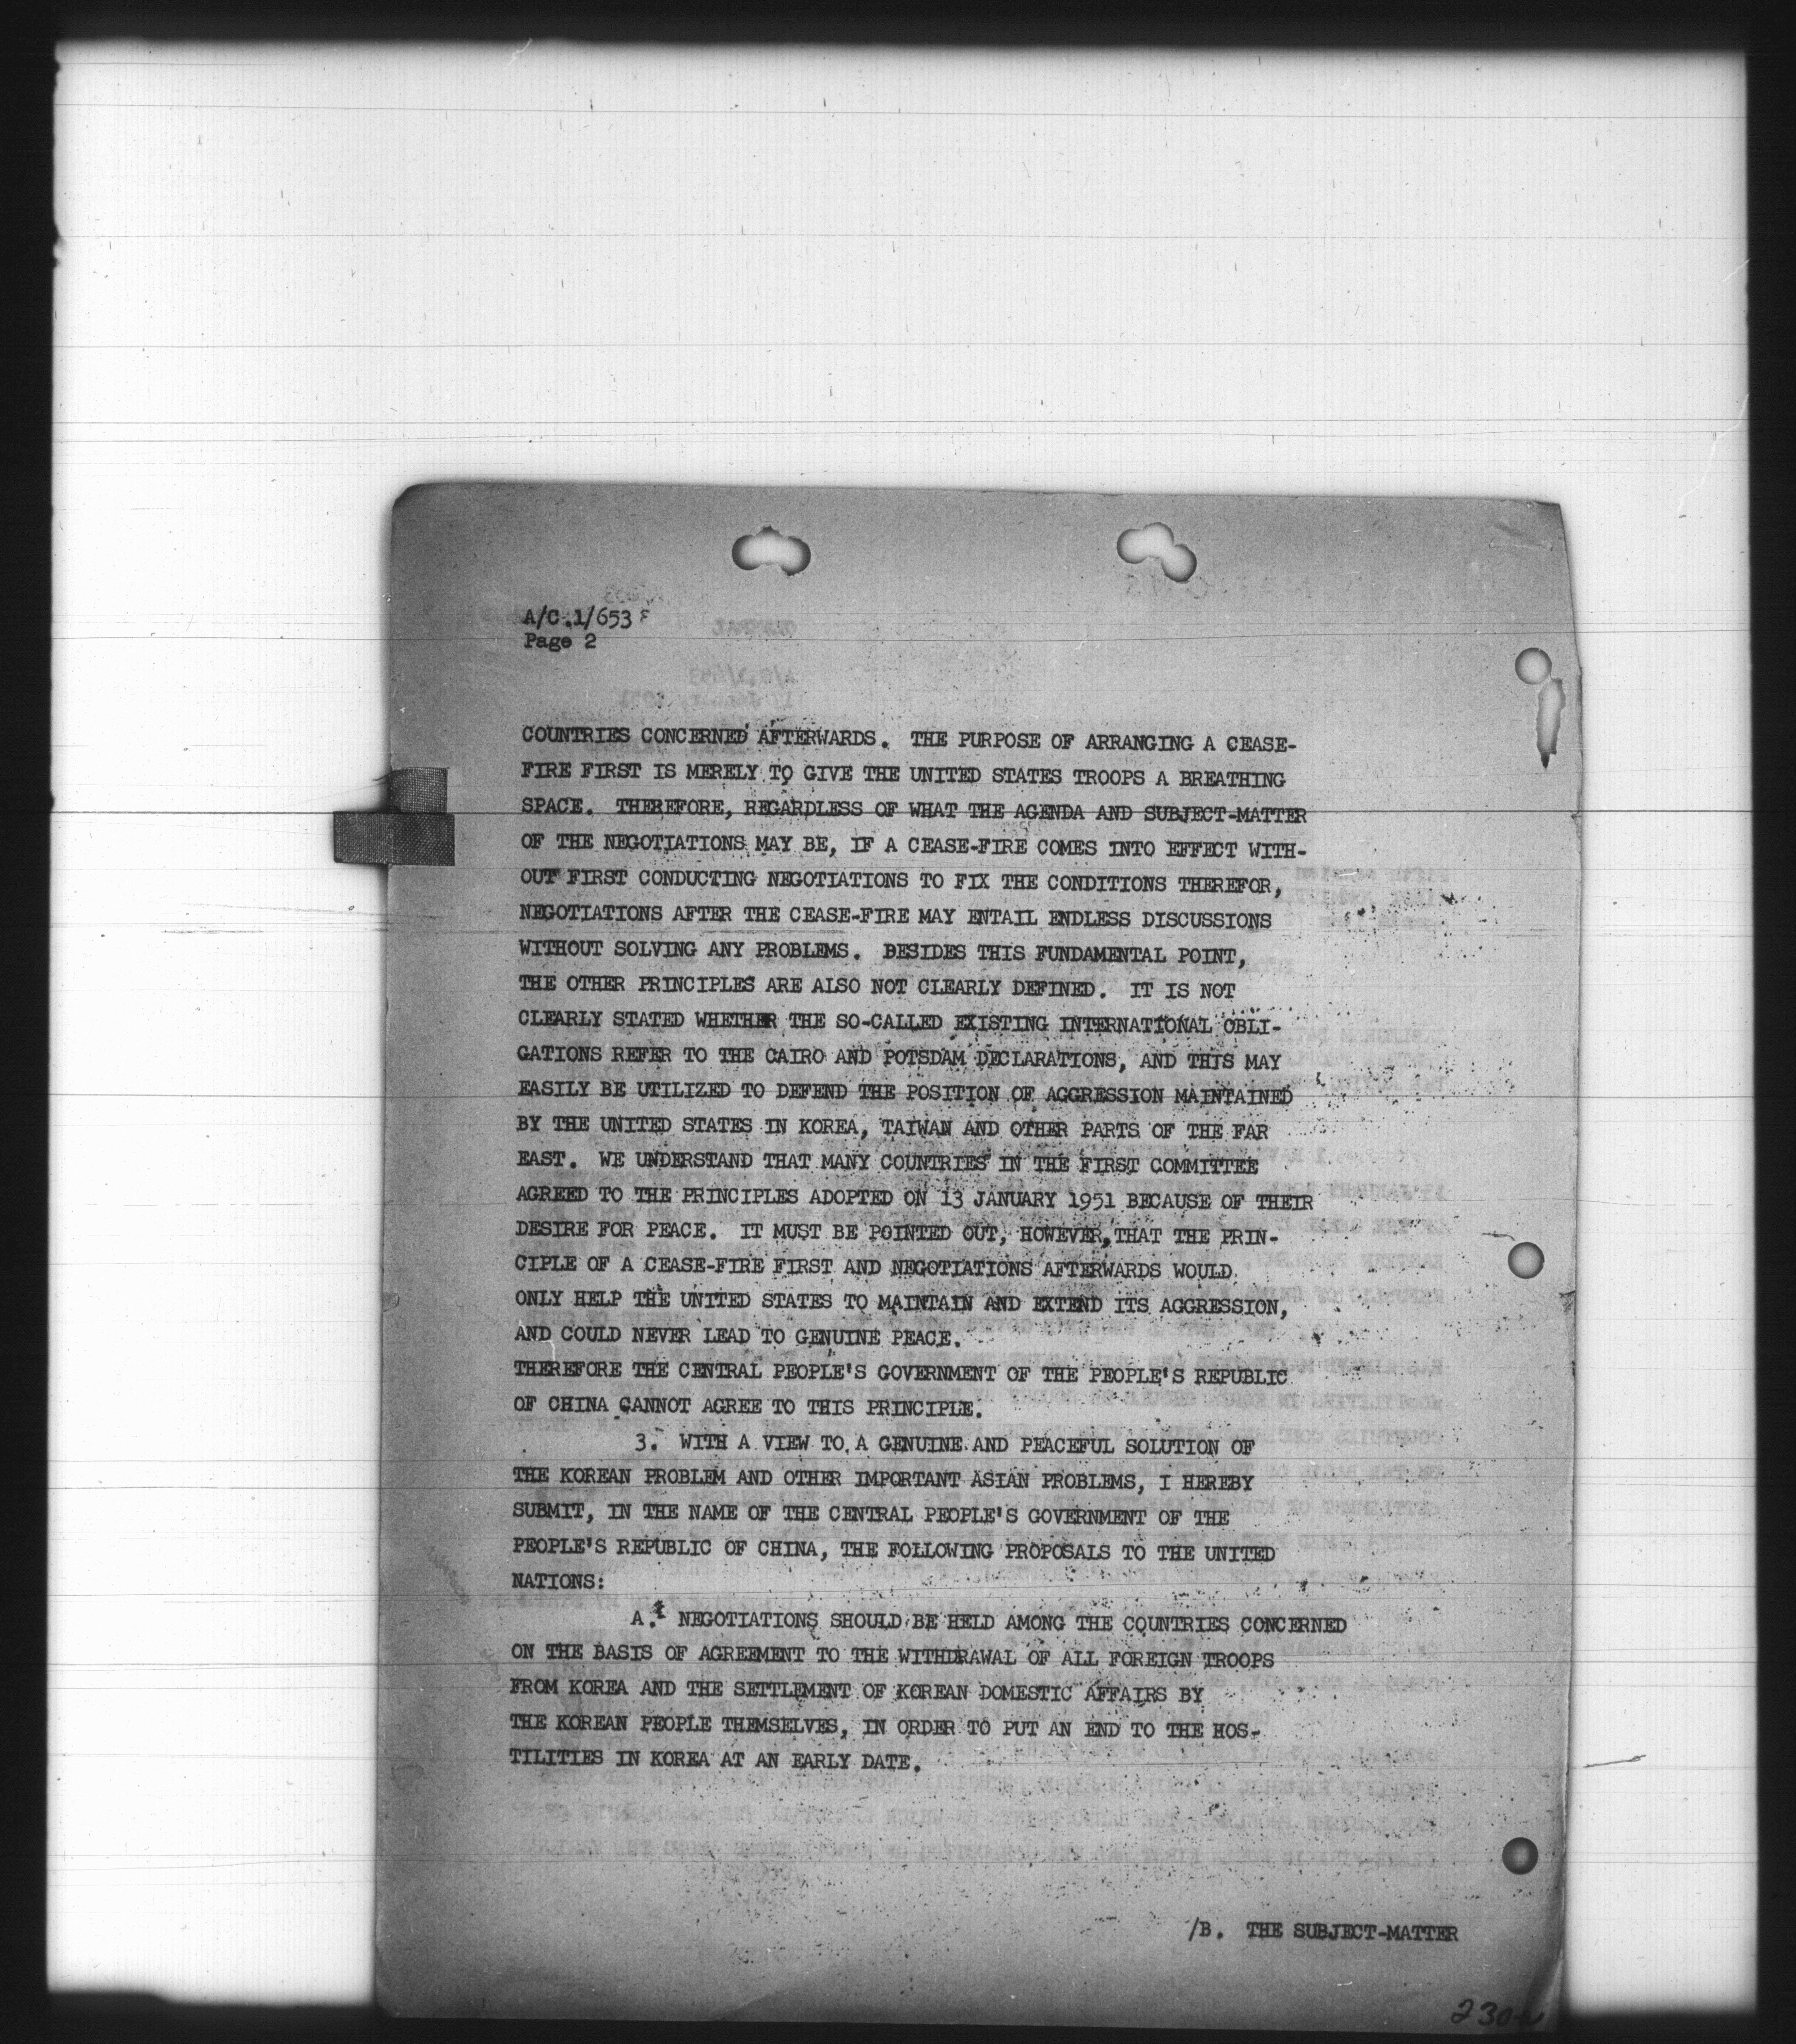 A/C.1/653
Page 2
COUNTRIES CONCERNED AFTERWARDS. THE PURPOSE OF ARRANGING A CEASE-
FIRE FIRST IS MERELY TO GIVE THE UNITED STATES TROOPS A BREATHING
SPACE. THEREFORE, REGARDLESS OF WHAT THE AGENDA AND SUBJECT-MATTER
OF THE NEGOTIATIONS MAY BE, IF A CEASE-FIRE COMES INTO EFFECT WITH-
OUT FIRST CONDUCTING NEGOTIATIONS TO FIX THE CONDITIONS THEREFOR,
NEGOTIATIONS AFTER THE CEASE-FIRE MAY ENTAIL ENDLESS DISCUSSIONS
WITHOUT SOLVING ANY PROBLEMS. BESIDES THIS FUNDAMENTAL POINT,
THE OTHER PRINCIPLES ARE ALSO NOT CLEARLY DEFINED. IT IS NOT
CLEARLY STATED WHETHER THE SO-CALLED EXISTING INTERNATIONAL OBLI-
GATIONS REFER TO THE CAIRO AND POTSDAM DECLARATIONS, AND THIS MAY
EASILY BE UTILIZED TO DEFEND THE POSITION OF AGGRESSION MAINTAINED
BY THE UNITED STATES IN KOREA, TAIWAN AND OTHER PARTS OF THE FAR
EAST. WE UNDERSTAND THAT MANY COUNTRIES IN THE FIRST COMMITTEE
AGREED TO THE PRINCIPLES ADOPTED ON 13 JANUARY 1951 BECAUSE OF THEIR
DESIRE FOR PEACE. IT MUST BE POINTED OUT, HOWEVER, THAT THE PRIN-
CIPLE OF A CEASE-FIRE FIRST AND NEGOTIATIONS AFTERWARDS WOULD
ONLY HELP THE UNITED STATES TO MAINTAIN AND EXTEND ITS AGGRESSION,
AND COULD NEVER LEAD TO GENUINE PEACE.
THEREFORE THE CENTRAL PEOPLE'S GOVERNMENT OF THE PEOPLE'S REPUBLIC
OF CHINA CANNOT AGREE TO THIS PRINCIPLE.
3. WITH A VIEW TO A GENUINE AND PEACEFUL SOLUTION OF
THE KOREAN PROBLEM AND OTHER IMPORTANT ASIAN PROBLEMS, I HEREBY
SUBMIT, IN THE NAME OF THE CENTRAL PEOPLE'S GOVERNMENT OF THE
PEOPLE'S REPUBLIC OF CHINA, THE FOLLOWING PROPOSALS TO THE UNITED
NATIONS:
A. NEGOTIATIONS SHOULD BE HELD AMONG THE COUNTRIES CONCERNED
ON THE BASIS OF AGREEMENT TO THE WITHDRAWAL OF ALL FOREIGN TROOPS
FROM KOREA AND THE SETTLEMENT OF KOREAN DOMESTIC AFFAIRS BY
THE KOREAN PEOPLE THEMSELVES, IN ORDER TO PUT AN END TO THE HOS-
TILITIES IN KOREA AT AN EARLY DATE.
/B. THE SUBJECT-MATTER